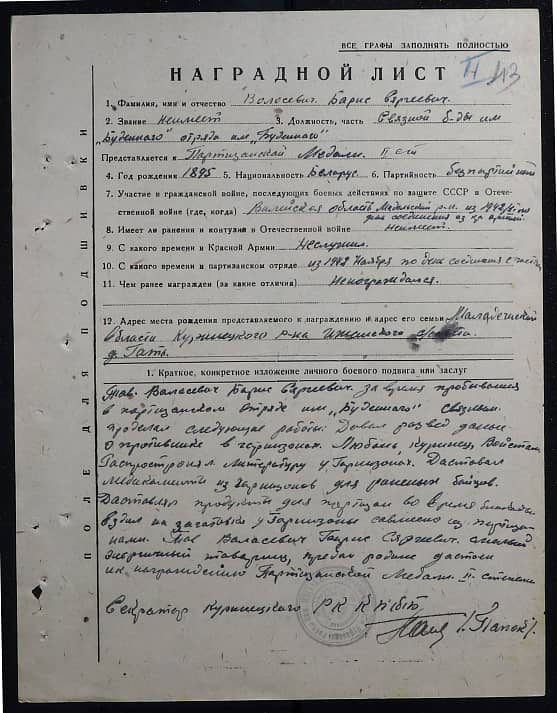 ВСЕ ГРАФЫ ЗАПОЛНЯТЬ ПОЛНОСТЬЮ
НАГРАДНОЙ ЛИСТ
1. Фамилия, имя и отчество Волосевич Барис Сяргеевич.
2. Звание неимеет 3. Должность, часть Связной б-ды им
"Буденного" отряда им "Буденного"
Представляется к Партизанской Медали II ст
4. Год рождения 1895 5. Национальность Беларус 6. Партийность безпартийный
7. Участие в гражданской войне, последующих боевых действиях по защите СССР в Отече-
ственной войне (где, когда) Вилейская область из 1942
дня соединения
8. Имеет ли ранения и контузии в Отечественной войне Неимеет.
9. С какого времени в Красной Армии Неслужил.
10. С какого времени в партизанском отряде из 1942 Ноября по день соединения с
11. Чем ранее награжден (за какие отличия) Ненограждался.
12. Адрес места рождения представляемого к награждению и адрес его семьи
Области Куринецкого р-на
д. Гать.
1. Краткое, конкретное изложение личного боевого подвига или заслуг
Тов. Валасевич Барис Сяргеевич за время пробывания
в партизанском отряде им "Буденного" связным
проделал следующие работы: Довал развед даные
о противнике в горнизонах. Любань, Куринец,
Распростронял литературу у Горнизонах. Даставал
медикаменты из Гарнизонов для раненых бойцов.
Даставлял продукты для партизан во время блокады.
ездил на заготовки у Горнизоны савмесно с партиза-
нами. Тов Валасевич Барис Сяргевич. смелый
энергичный товарищ, предан родине достоен
к награждению Партизанской Медали II. степени
Секратор Куринецкого РК КП(б)Б
ПОЛЕ ДЛЯ ПОДШИВКИ